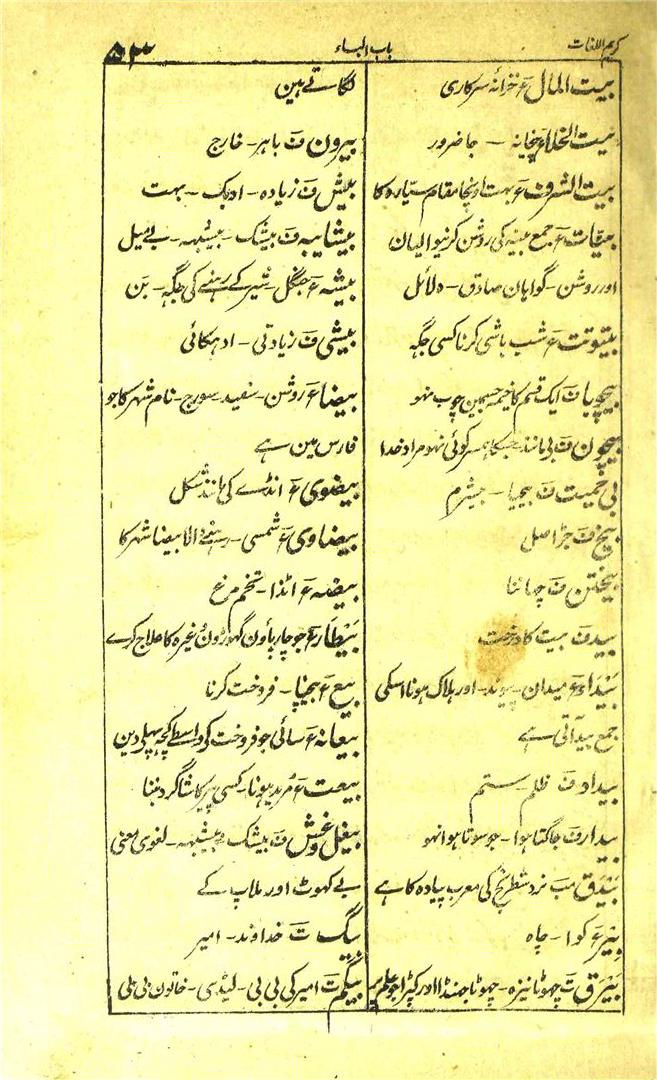 کریم اللغات
باب الباء
۵۳
بیت المال ع خزانہ سرکاری
بیت الخلا ع پیخانہ - جا ضرور
بیت الشرف ع بہت اونچا مقام سیّارہ کا
بینات ع جمع بینہ کی روشن کرنیوالیان
اور روشن - گواہان صادق - دلائل
بیتوتت ع شب باشی کرنا کسی جگہ
بیچوبا ف ایک قسم کا خیمہ جسمین چوب نہو
بیچون ف بی مانند جسکا ہمسر کوئی نہو مراد خدا
بی حمیت ف بیحیا - بیشرم
بیخ ف جڑ اصل
بیختن ف چھاننا
بید ف بیت کا درخت
بیداء ع میدان - اور ہلاک ہونا اسکی
جمع بید آتی ہے
بیداد ف ظلم - ستم
بیدار ف جاگتا ہوا - جو سوتا ہوا نہو
بیذق مب نرد شطرنج کی معرب پیادہ کا ہے
بئر ع کوا - چاہ
بیرق ت چھوٹا نیزہ - چھوٹا جھنڈا اور کپڑا جو علم پر
لگاتے ہین
بیرون ف باہر - خارج
بیش ف زیادہ - ادہک - بہت
بیشایبہ ف بیشک - بیشبہہ - بے میل
بیشہ ع جنگل - شیر کے رہنے کی جگہ - بَن
بیشی ف زیادتی - ادہکائی
بیضا ع روشن - سفید - سورج - نام شہر کا جو
فارس مین ہے
بیضوی ع انڈے کی مانند شکل
بیضاوی ع شمسی - رہنے والا بیضا شہر کا
بیضہ ع انڈا - تخم مرغ
بیطار ع جو چارپاؤن گھوڑون وغیرہ کا علاج کرے
بیع ع بیچنا - فروخت کرنا
بیعانہ ع سائی جو فروخت کی واسطے کچھ پہلی دین
بیعت ع مرید ہونا - کسی پیر کا شاگرد بننا
بیغل وغش ف بیشک و بیشبہہ - لغوی معنی
بے کھوٹ اور ملاپ کے
بیگ ت خداوند - امیر
بیگم ت امیر کی بی بی - لیڈی - خاتون بی بی